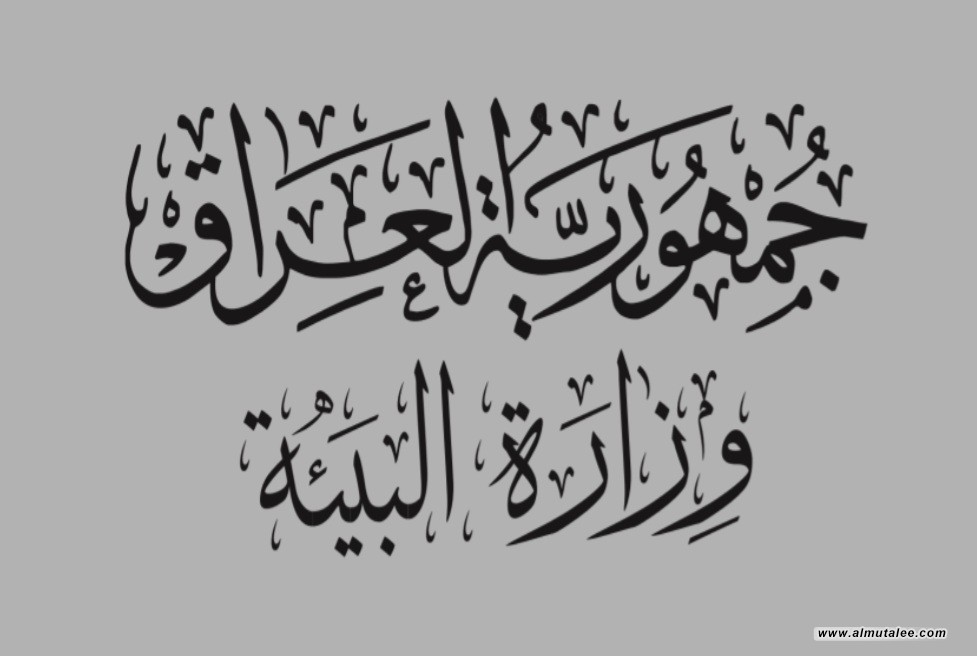 جُمْهُورِيَّةُ العِرَاق
وِزَارَةُ البيئَة
www.almutalee.com